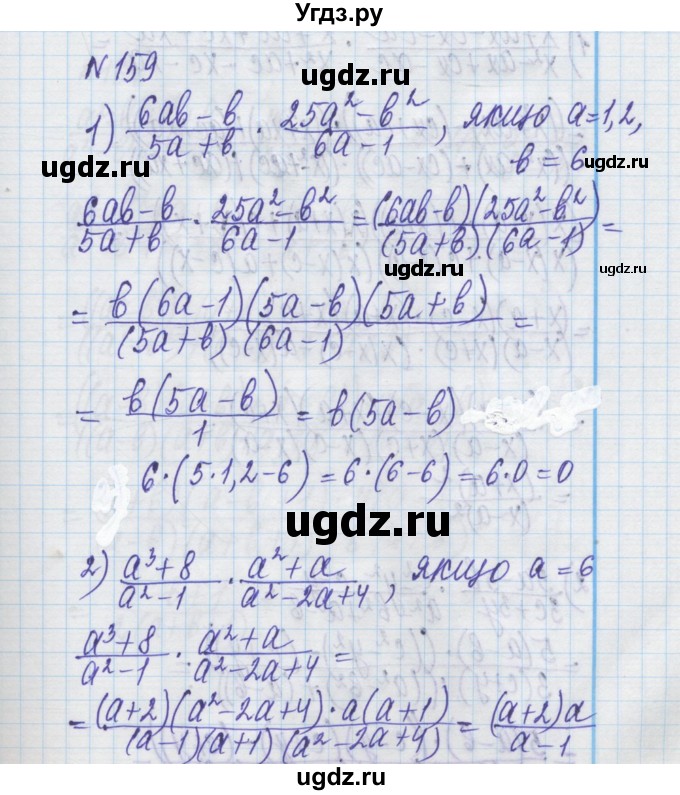 Угдз.ру
№159
ugdz.ru
1) (6ab − b)/(5a + b) · (25a² − b²)/(6a − 1), якщо a=1,2,
b = 6
ugdz.ru
ugdz.ru
ugdz.ru
(6ab − b)/(5a + b) · (25a² − b²)/(6a − 1) = (6ab − b)(25a² − b²)/(5a + b)·(6a − 1) =
ugdz.ru
ugdz.ru
= b(6a − 1)(5a − b)(5a + b)/(5a + b)(6a − 1) =
= b(5a − b)/1 = b(5a − b)
6·(5·1,2 − 6) = 6·(6 − 6) = 6·0 = 0
ugdz.ru
2) (a³ + 8)/(a² − 1) · (a² + a)/(a² − 2a + 4), якщо a = 6
ugdz.ru
ugdz.ru
(a³ + 8)/(a² − 1) · (a² + a)/(a² − 2a + 4) =
= (a+2)(a² − 2a + 4)·a(a+1)/(a−1)(a+1)(a² − 2a + 4) = (a+2)a/(a − 1)
ugdz.ru